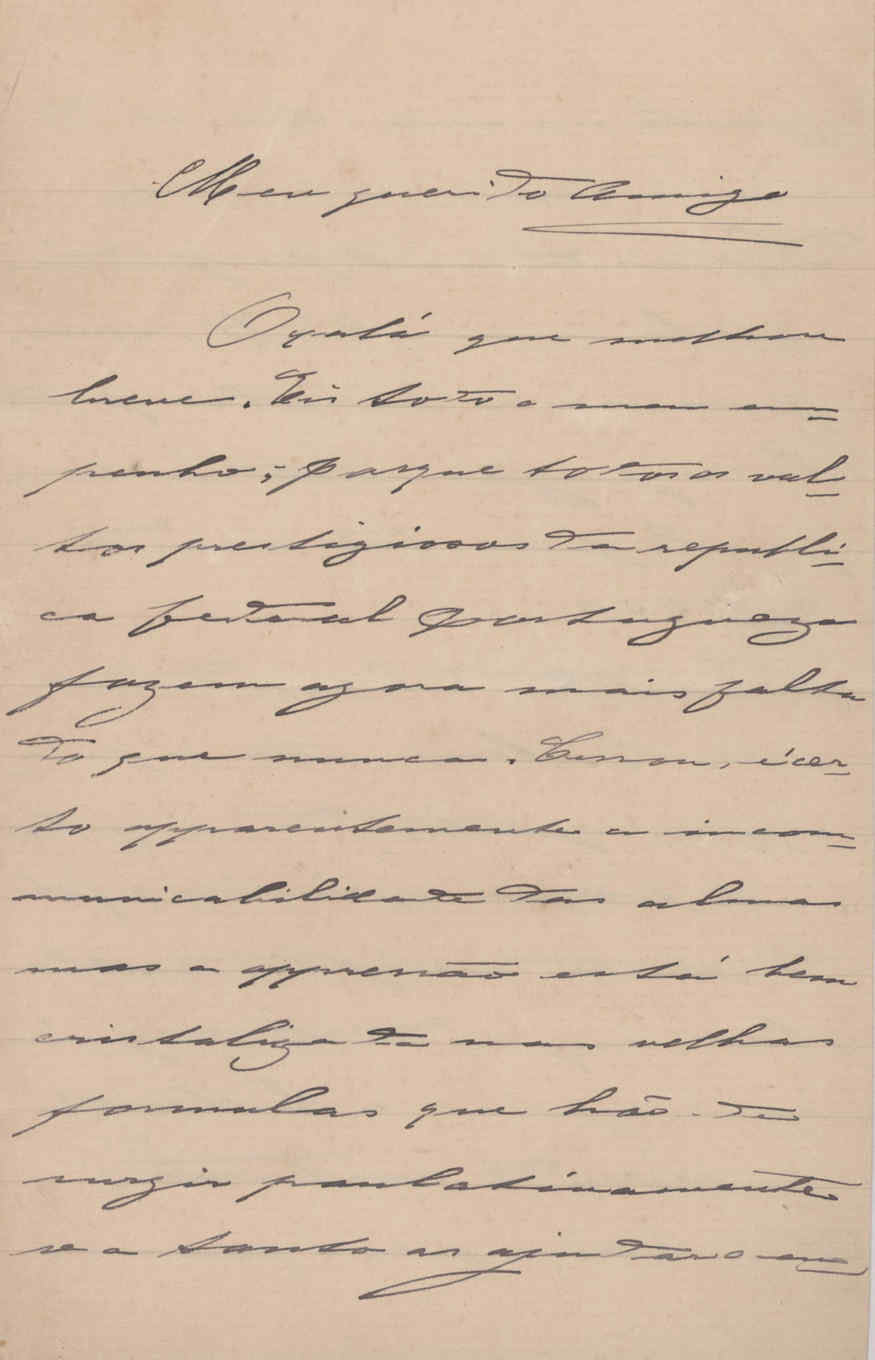 Meu querido Amigo
Oxalá que melhore
breve. Eis todo o meu em=
penho; porque todos os vul=
tos prestigiosos da republi=
ca federal portugueza
fazem agora mais falta
do que nunca. Cessou, é cer=
to apparentemente a incom=
municabilidade das almas
mas a oppressão está bem
cristalizada nas velhas
formulas que hão-de
surgir paulatinamente
se a tanto as ajudar o